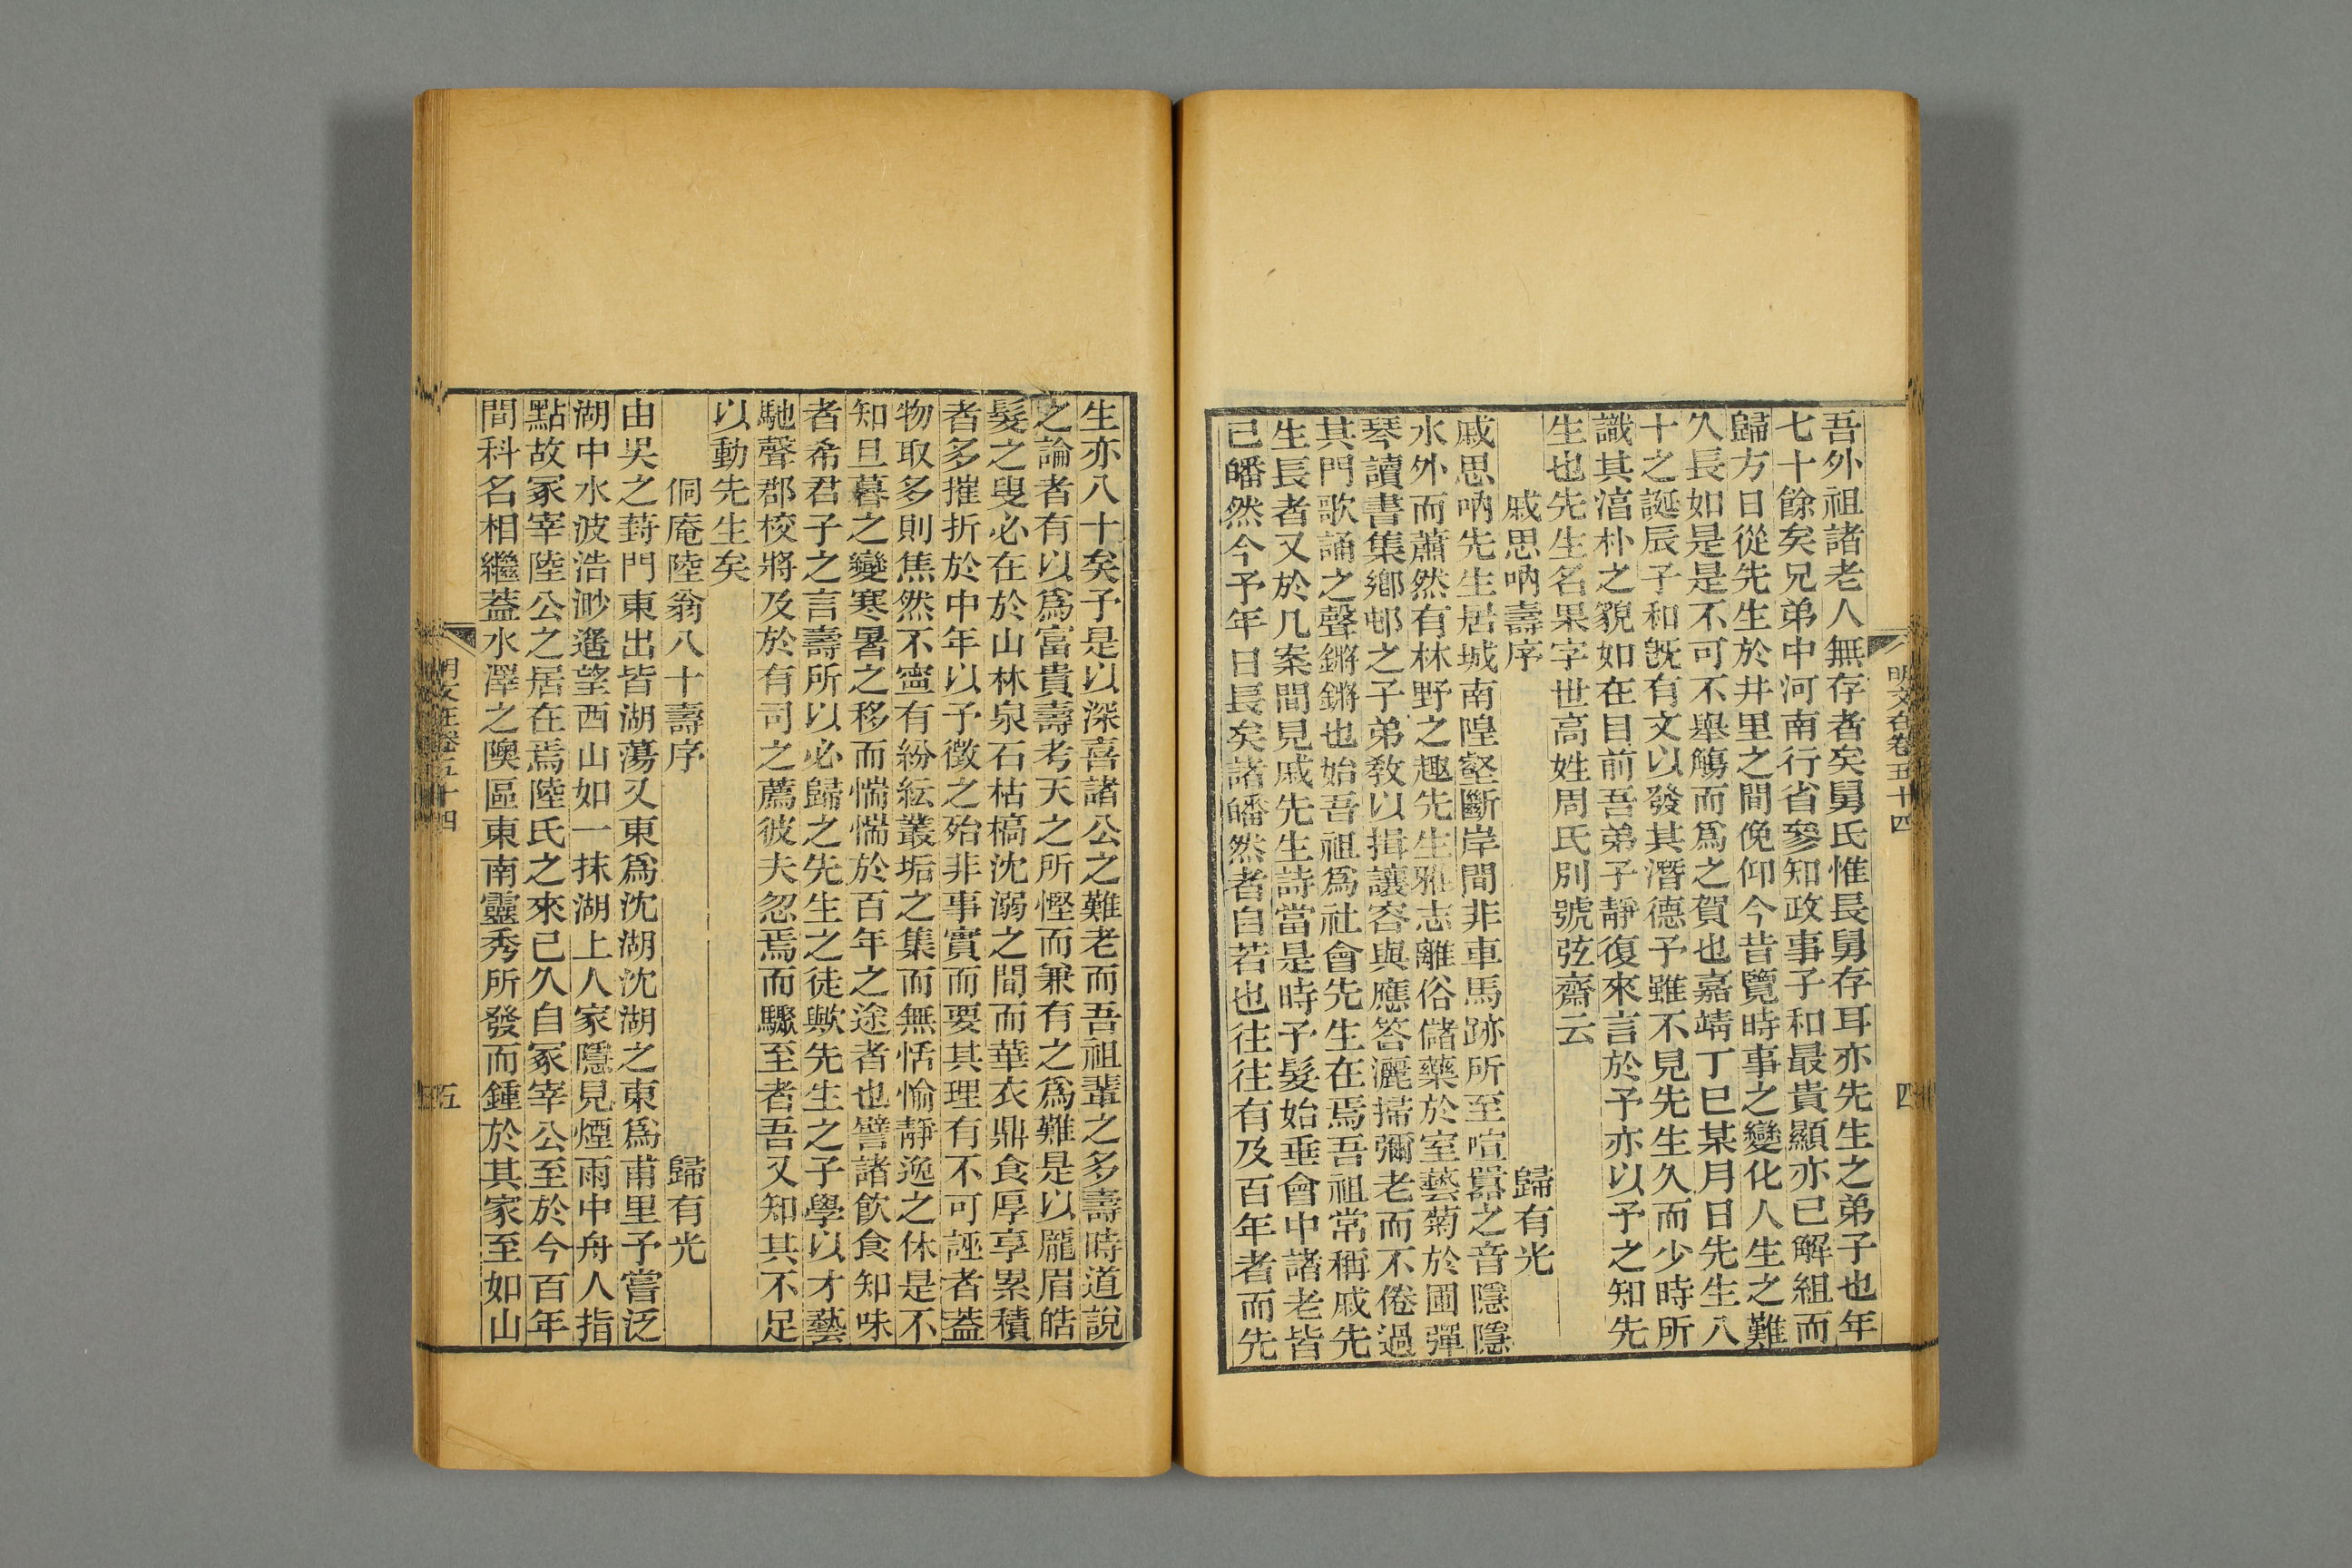 明文在卷五十四
四
吾外祖諸老人無存者矣舅氏惟長舅存耳亦先生之弟子也年
七十餘矣兄弟中河南行省參知政事子和最貴顯亦已解組而
歸方日從先生於井里之間俛仰今昔覽時事之變化人生之難
久長如是是不可不舉觴而爲之賀也嘉靖丁巳某月日先生八
十之誕辰子和旣有文以發其潛德予雖不見先生久而少時所
識其湻朴之貌如在目前吾弟子靜復來言於予亦以予之知先
生也先生名果字世高姓周氏別號弦齋云
戚思吶壽序 歸有光
戚思吶先生居城南隍壑斷岸間非車馬跡所至喧囂之音隱隱
水外而蕭然有林野之趣先生雅志離俗儲藥於室藝菊於圃彈
琴讀書集鄕邨之子弟敎以揖讓容與應答灑掃彌老而不倦過
其門歌誦之聲鏘鏘也始吾祖爲社會先生在焉吾祖常稱戚先
生長者又於几案間見戚先生詩當是時予髮始垂會中諸老皆
已皤然今予年日長矣諸皤然者自若也往往有及百年者而先
生亦八十矣予是以深喜諸公之難老而吾祖輩之多壽時道說
之論者有以爲富貴壽考天之所慳而兼有之爲難是以龐眉皓
髮之叟必在於山林泉石枯槁沈溺之間而華衣鼎食厚享累積
者多摧折於中年以予徵之殆非事實而要其理有不可誣者蓋
物取多則焦然不寧有紛紜叢垢之集而無恬愉靜逸之休是不
知旦暮之變寒暑之移而惴惴於百年之途者也譬諸飮食知味
者希君子之言壽所以必歸之先生之徒歟先生之子學以才藝
馳聲郡校將及於有司之薦彼夫忽焉而驟至者吾又知其不足
以動先生矣
侗庵陸翁八十壽序 歸有光
由吳之葑門東出皆湖蕩又東爲沈湖沈湖之東爲甫里予嘗泛
湖中水波浩渺遙望西山如一抹湖上人家隱見煙雨中舟人指
點故冢宰陸公之居在焉陸氏之來已久自冢宰公至於今百年
間科名相繼蓋水澤之隩區東南靈秀所發而鍾於其家至如山
明文在卷五十四
五